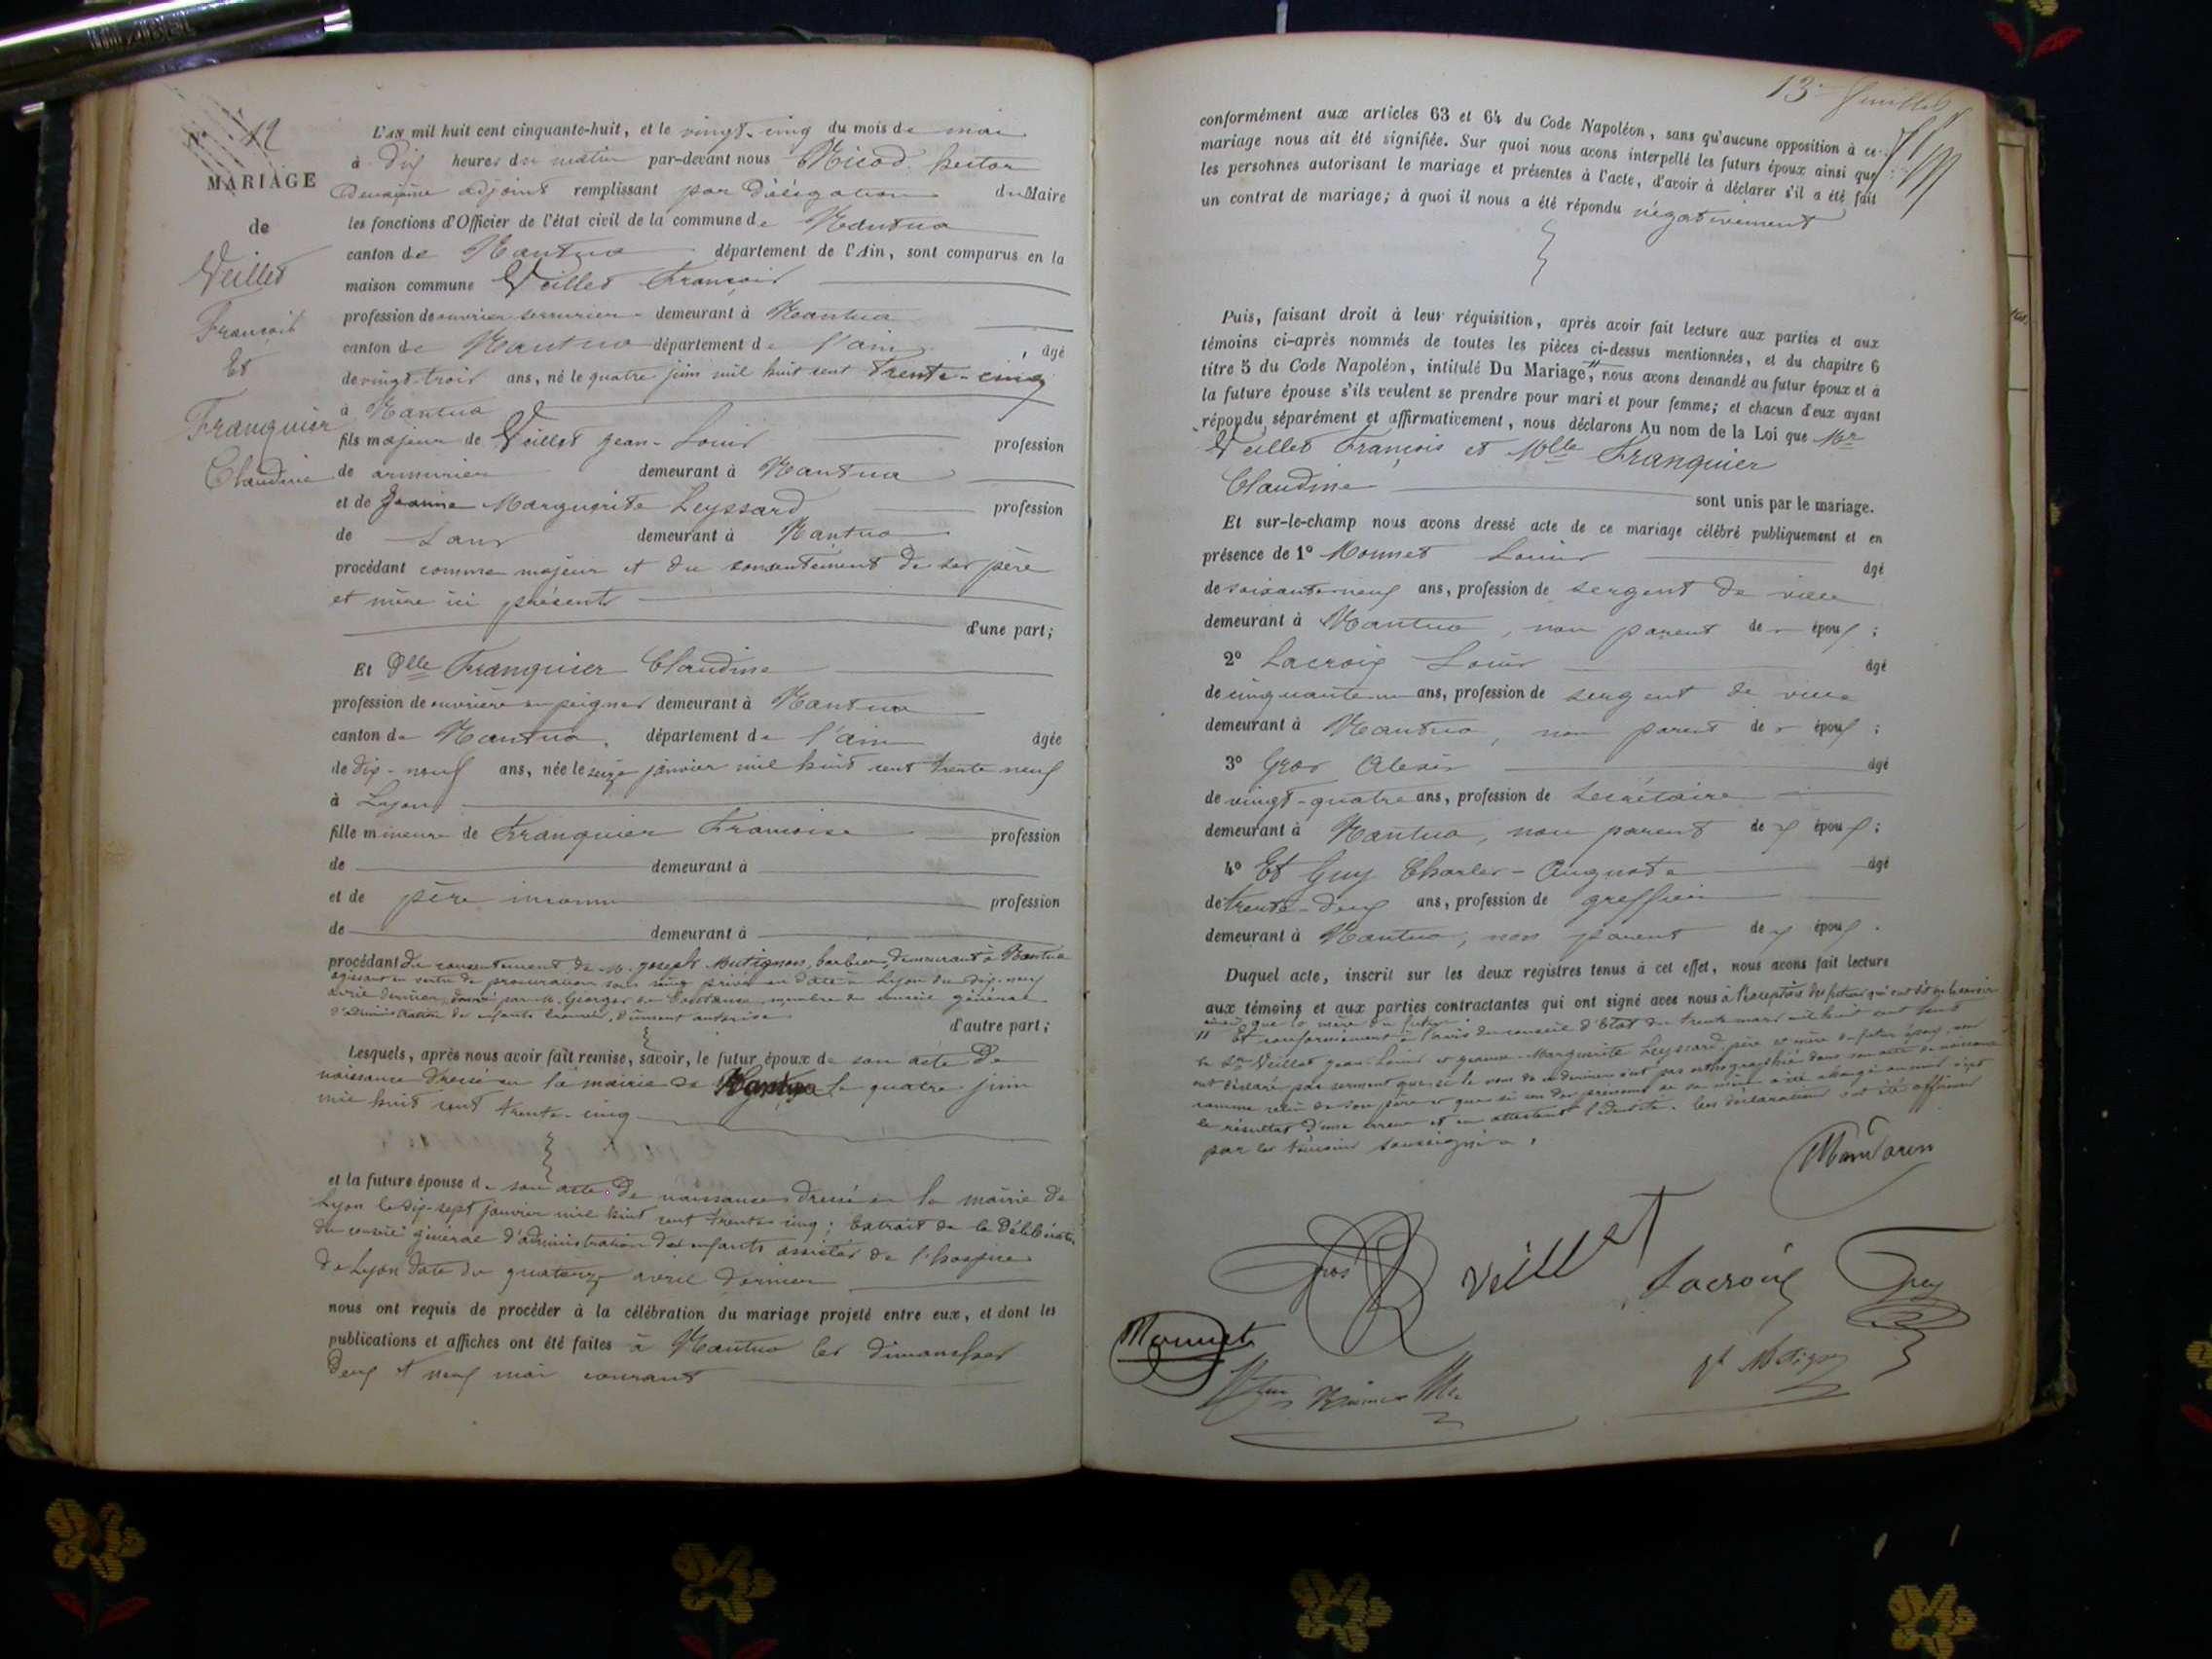 N° 12
MARIAGE
de
Veillet
François
Et
Franquier
Claudine
L'AN mil huit cent cinquante-huit, et le vingt-cinq du mois de mai
à dix heures du matin par-devant nous Nicod hector
deuxième adjoint remplissant par délégation du Maire
les fonctions d'Officier de l'état civil de la commune de Nantua
canton de Nantua département de l'Ain, sont comparus en la
maison commune Veillet François
profession de ouvrier serrurier demeurant à Nantua
canton de Nantua département de l'ain, âgé
de vingt-trois ans, né le quatre juin mil huit cent trente-cinq
à Nantua
fils majeur de Veillet Jean-Louis profession
de armurier demeurant à Nantua
et de Jeanne Marguerite Leyssard profession
de sans demeurant à Nantua
procédant comme majeur et du consentement de ses père
et mère ici présents
d'une part;
Et Dlle Franquier Claudine
profession de ouvrière en peignes demeurant à Nantua
canton de Nantua, département de l'ain âgée
de dix-neuf ans, née le seize janvier mil huit cent trente neuf
à Lyon
fille mineure de Franquier Francoise profession
de demeurant à
et de père inconnu profession
de demeurant à
procédant du consentement de M. Joseph Mutignon, barbier, demeurant à Nantua
agissant en vertu de procuration sous seing privé en date à Lyon du dix-neuf
avril dernier, donné par M. Georges de membre du conseil général
d'administration des enfants trouvés, dûment autorisé
d'autre part;
Lesquels, après nous avoir fait remise, savoir, le futur époux de son acte de
naissance dressé en la mairie de Nantua le quatre juin
mil huit cent trente-cinq
et la future épouse de son acte de naissance dressé en la mairie de
Lyon le dix-sept janvier mil huit cent trente cinq; Extrait de la Délibération
du conseil général d'administration des enfants assistés de l'hospice
de Lyon date du quatorze avril dernier
nous ont requis de procéder à la célébration du mariage projeté entre eux, et dont les
publications et affiches ont été faites à Nantua les dimanches
deux et neuf mai courant
13e feuillet
conformément aux articles 63 et 64 du Code Napoléon, sans qu'aucune opposition à ce
mariage nous ait été signifiée. Sur quoi nous avons interpellé les futurs époux ainsi que
les personnes autorisant le mariage et présentes à l'acte, d'avoir à déclarer s'il a été fait
un contrat de mariage; à quoi il nous a été répondu négativement
Puis, faisant droit à leur réquisition, après avoir fait lecture aux parties et aux
témoins ci-après nommés de toutes les pièces ci-dessus mentionnées, et du chapitre 6
titre 5 du Code Napoléon, intitulé Du Mariage, nous avons demandé au futur époux et à
la future épouse s'ils veulent se prendre pour mari et pour femme; et chacun d'eux ayant
répondu séparément et affirmativement, nous déclarons Au nom de la Loi que Mr
Veillet François et Mlle Franquier
Claudine sont unis par le mariage.
Et sur-le-champ nous avons dressé acte de ce mariage célébré publiquement et en
présence de 1° Monnet Louis âgé
de soixante-neuf ans, profession de sergent de ville
demeurant à Nantua, non parent des époux;
2° Lacroix Louis âgé
de cinquante-un ans, profession de sergent de ville
demeurant à Nantua, non parent des époux;
3° Gros Alexis âgé
de vingt-quatre ans, profession de secrétaire
demeurant à Nantua, non parent des époux;
4° Et Guy Charles-Auguste âgé
de trente-deux ans, profession de greffier
demeurant à Nantua, non parent des époux.
Duquel acte, inscrit sur les deux registres tenus à cet effet, nous avons fait lecture
aux témoins et aux parties contractantes qui ont signé avec nous à l'exception des futurs qui ont dit ne le savoir
ainsi que la mère du futur.
" Et conformément à l'avis du conseil d'Etat du trente mars mil huit cent huit
le Sr Veillet Jean-Louis et Jeanne-Marguerite Leyssard père et mère du futur époux, nous
ont déclaré par serment que si le nom de ce dernier n'est pas orthographié dans son acte de naissance
comme celui de son père et que si un des prénoms de sa mère a été changé ce n'est que
le résultat d'une erreur et en attestent l'identité. Ces déclarations ont été affirmées
par les témoins soussignés.
Gros
Veillet
Lacroix
Guy
Monnet